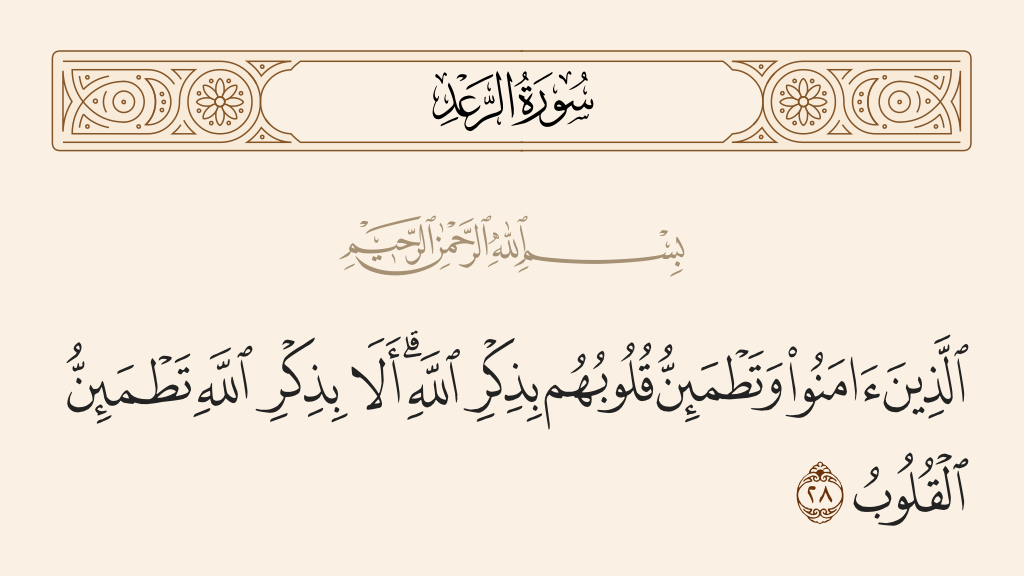 سُورَةُ الرَّعْدِ
بِسْمِ ٱللَّهِ ٱلرَّحْمَٰنِ ٱلرَّحِيمِ
ٱلَّذِينَ ءَامَنُوا۟ وَتَطْمَئِنُّ قُلُوبُهُم بِذِكْرِ ٱللَّهِ ۗ أَلَا بِذِكْرِ ٱللَّهِ تَطْمَئِنُّ
ٱلْقُلُوبُ ٢٨